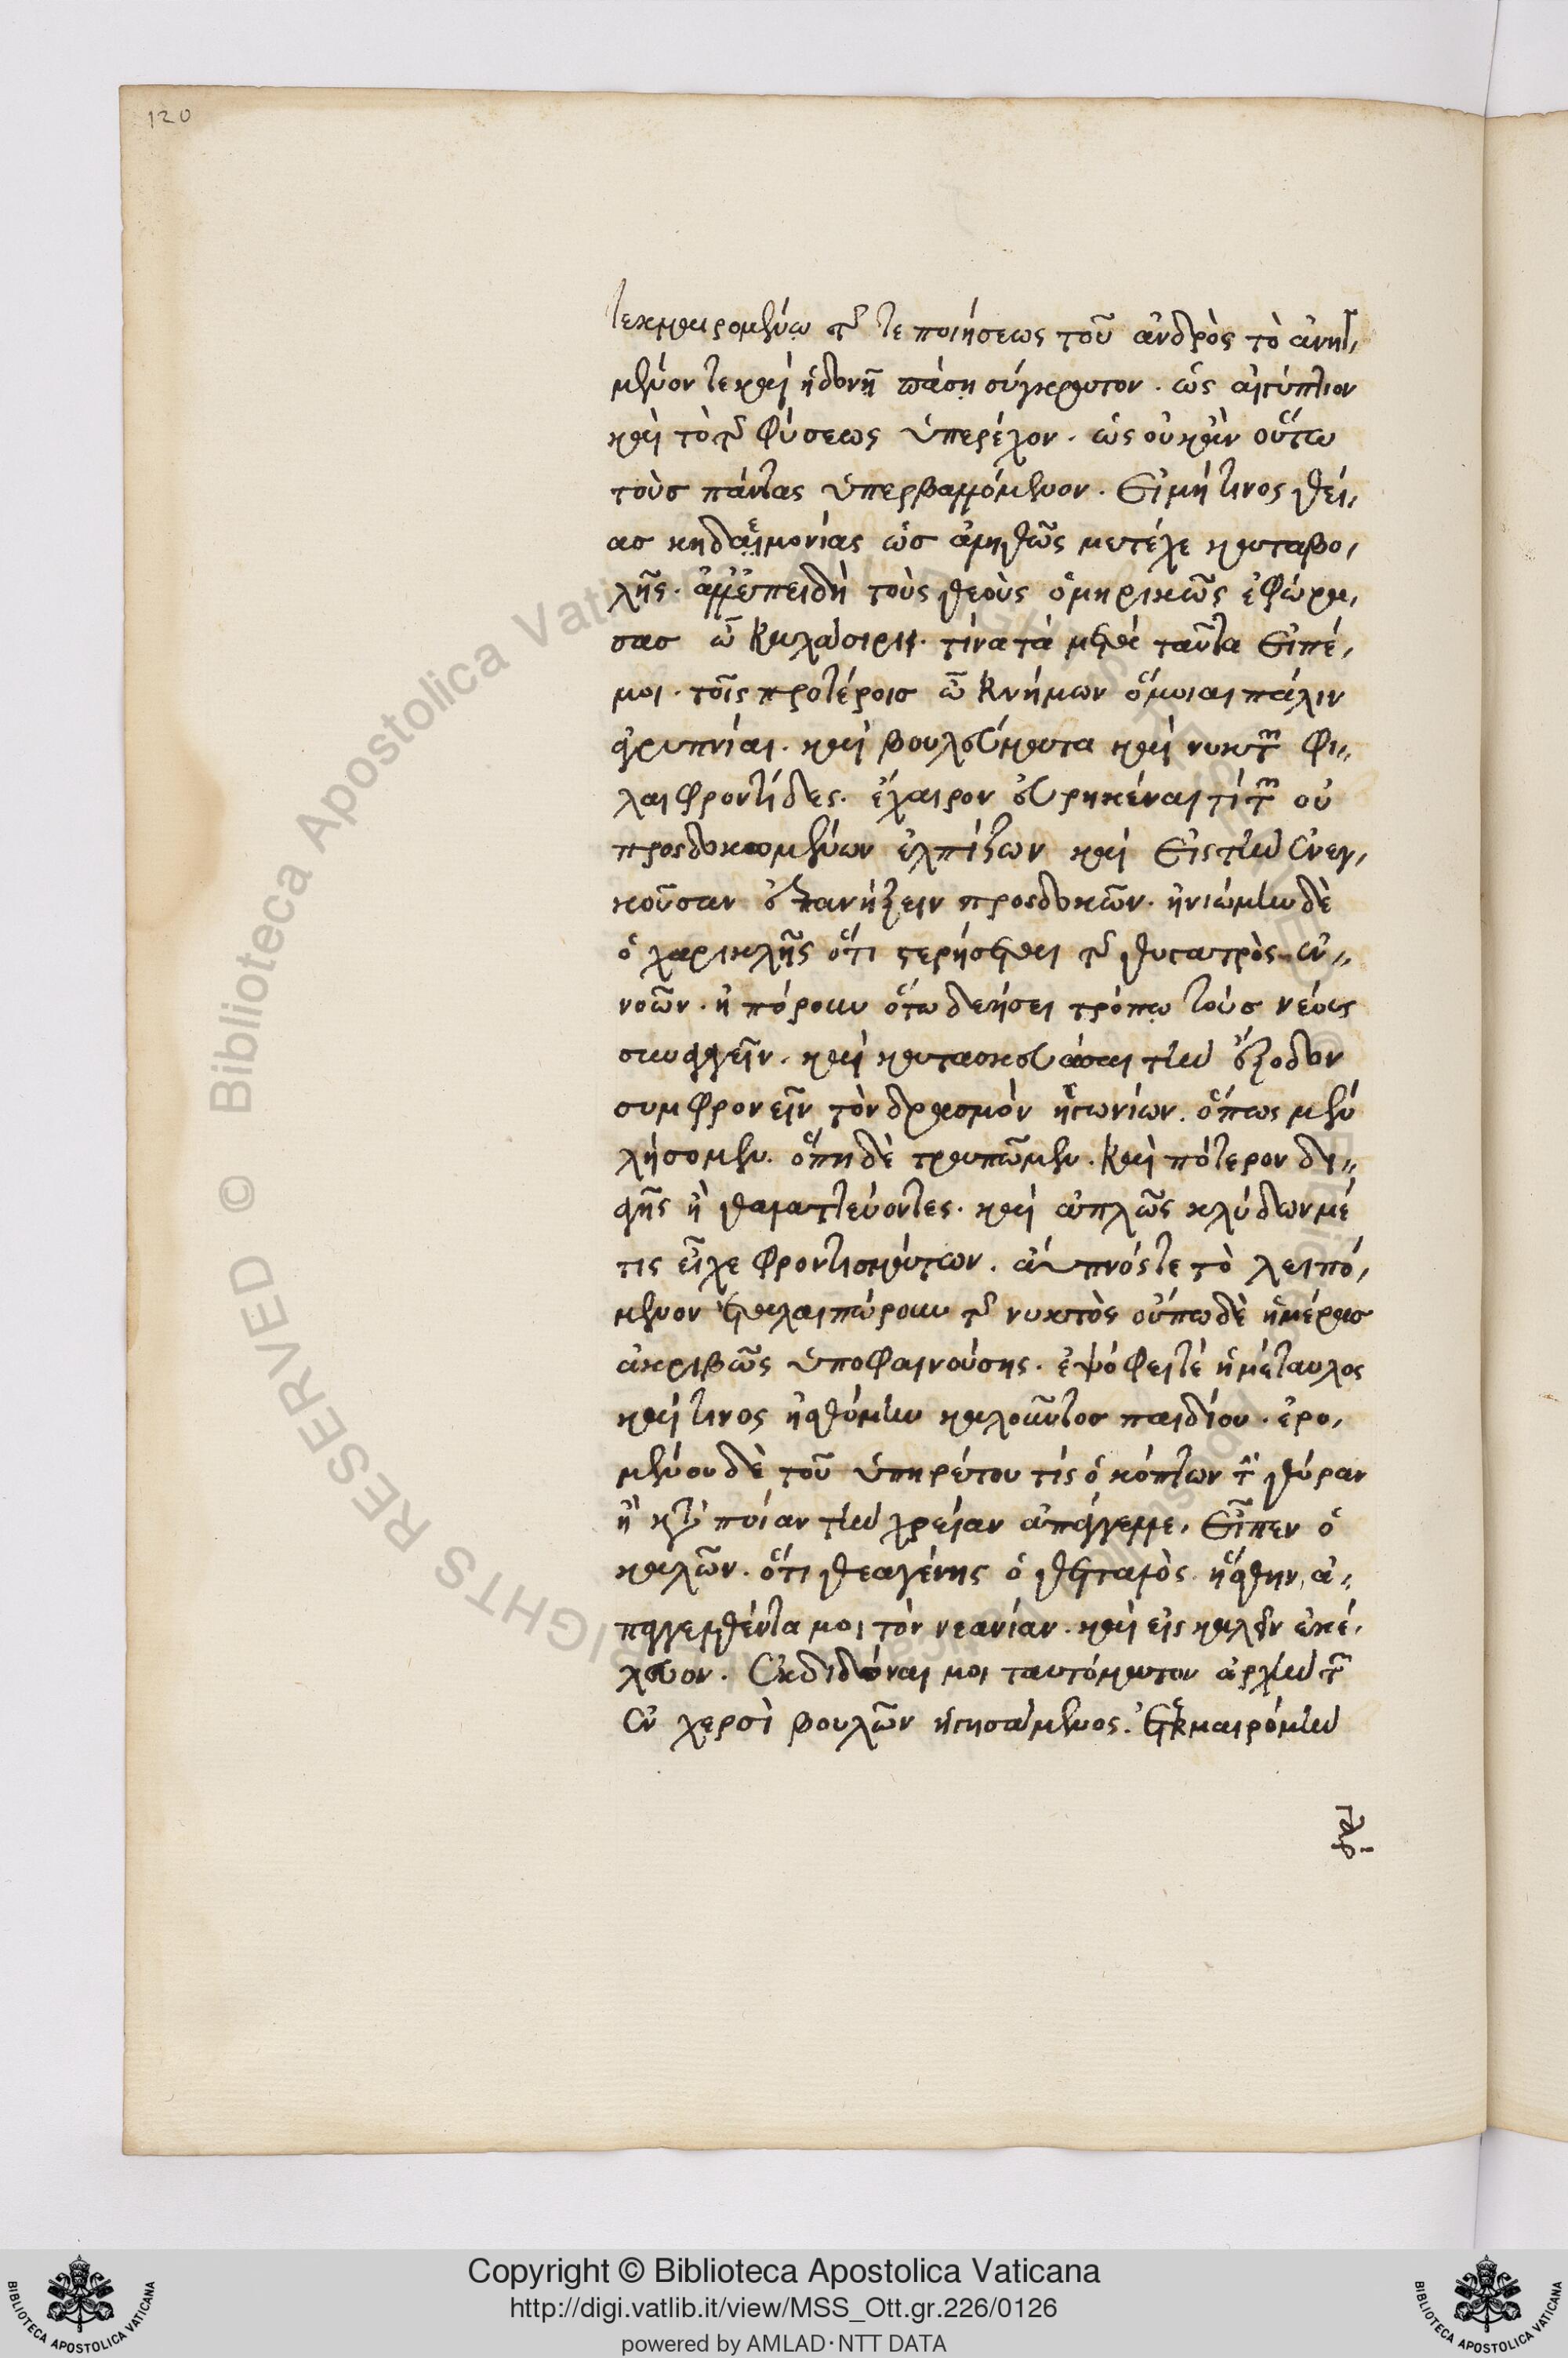 120
τεκμαιρομένῳ τῆς τε ποιήσεως τοῦ ἀνδρὸς τὸ ἀνητ,
μένον τε καὶ ἡδονῇ πάσῃ σύγκρατον. ὡς αἰγύπτιον
καὶ τὸ τῆς φύσεως ὑπερέχον. ὡς οὐκ ἂν οὕτω
τοὺς πάντας ὑπερβαλλόμενον. εἰ μή τινος θεί,
ας κηδαιμονίας ὡς ἀληθῶς μετέχε καταβο,
λῆς. ἀλλ' ἐπειδὴ τοὺς θεοὺς ὁμηρικῶς ἐφώρα,
σας ὦ καλάσιρι. τίνα τὰ μετὰ ταῦτα εἰπέ,
μοι. τοῖς προτέροις ὦ κνήμων ὅμοιαι πάλιν
ἀγρυπνίαι. καὶ βουλεύματα καὶ νυκτῶν φί,,
λαι φροντίδες. ἔχαιρον εὑρηκέναι τί τῶν οὐ
προσδοκωμένων ἐλπίζων καὶ εἰς τὴν ἐνεγ,
κοῦσαν ἐπανήξειν προσδοκῶν. ἠνιώμην δὲ
ὁ χαρικλῆς ὅτι στερήσεται τῆς θυγατρὸς ἐν,,
νοῶν. ἠπόρουν ὅτῳ δεήσει τρόπῳ τοὺς νέους
συναγαγεῖν. καὶ κατασκευάσαι τὴν ἔξοδον
συμφρονεῖν τὸν δρασμὸν ἠγωνίων. ὅπως μὲν
λήσομεν. ὅπη δὲ τραπῶμεν. καὶ πότερον διὰ,,
γῆς ἢ θαλαττεύοντες. καὶ ἁπλῶς κλύδων μέ
τις εἶχε φροντισμάτων. ἄυπνός τε τὸ λειπό,
μενον ἐταλαιπώρουν τῆς νυκτὸς οὔπω δὲ ἡμέρας
ἀκριβῶς ὑποφαινούσης. ἐψόφει τέ ἡ μέταυλος
καί τινος ᾐσθόμην καλοῦντος παιδίου. ἐρο,
μένου δὲ τοῦ ὑπηρέτου τίς ὁ κόπτων τὴν θύραν
ἢ κατὰ ποίαν τὴν χρείαν ἀπάγγελλε. εἶπεν ὁ
καλῶν. ὅτι θεαγένης ὁ θετταλὸς. ἥσθην, ἀ,,
παγγελθέντα μοι τὸν νεανίαν. καὶ εἰσκαλεῖν ἐκέ,
λευον. ἐκδιδόναι μοι ταυτόματον ἀρχὴν τῶν
ἐν χερσὶ βουλῶν ἡγησάμενος. ἐτεκμαιρόμην
Copyright © Biblioteca Apostolica Vaticana
http://digi.vatlib.it/view/MSS_Ott.gr.226/0126
powered by AMLAD·NTT DATA